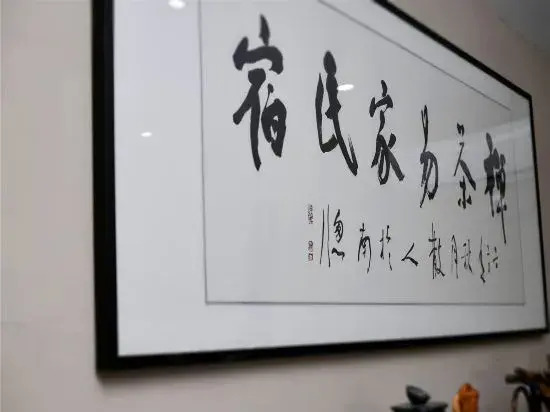 禅茶易家民宿
秋月散人於南